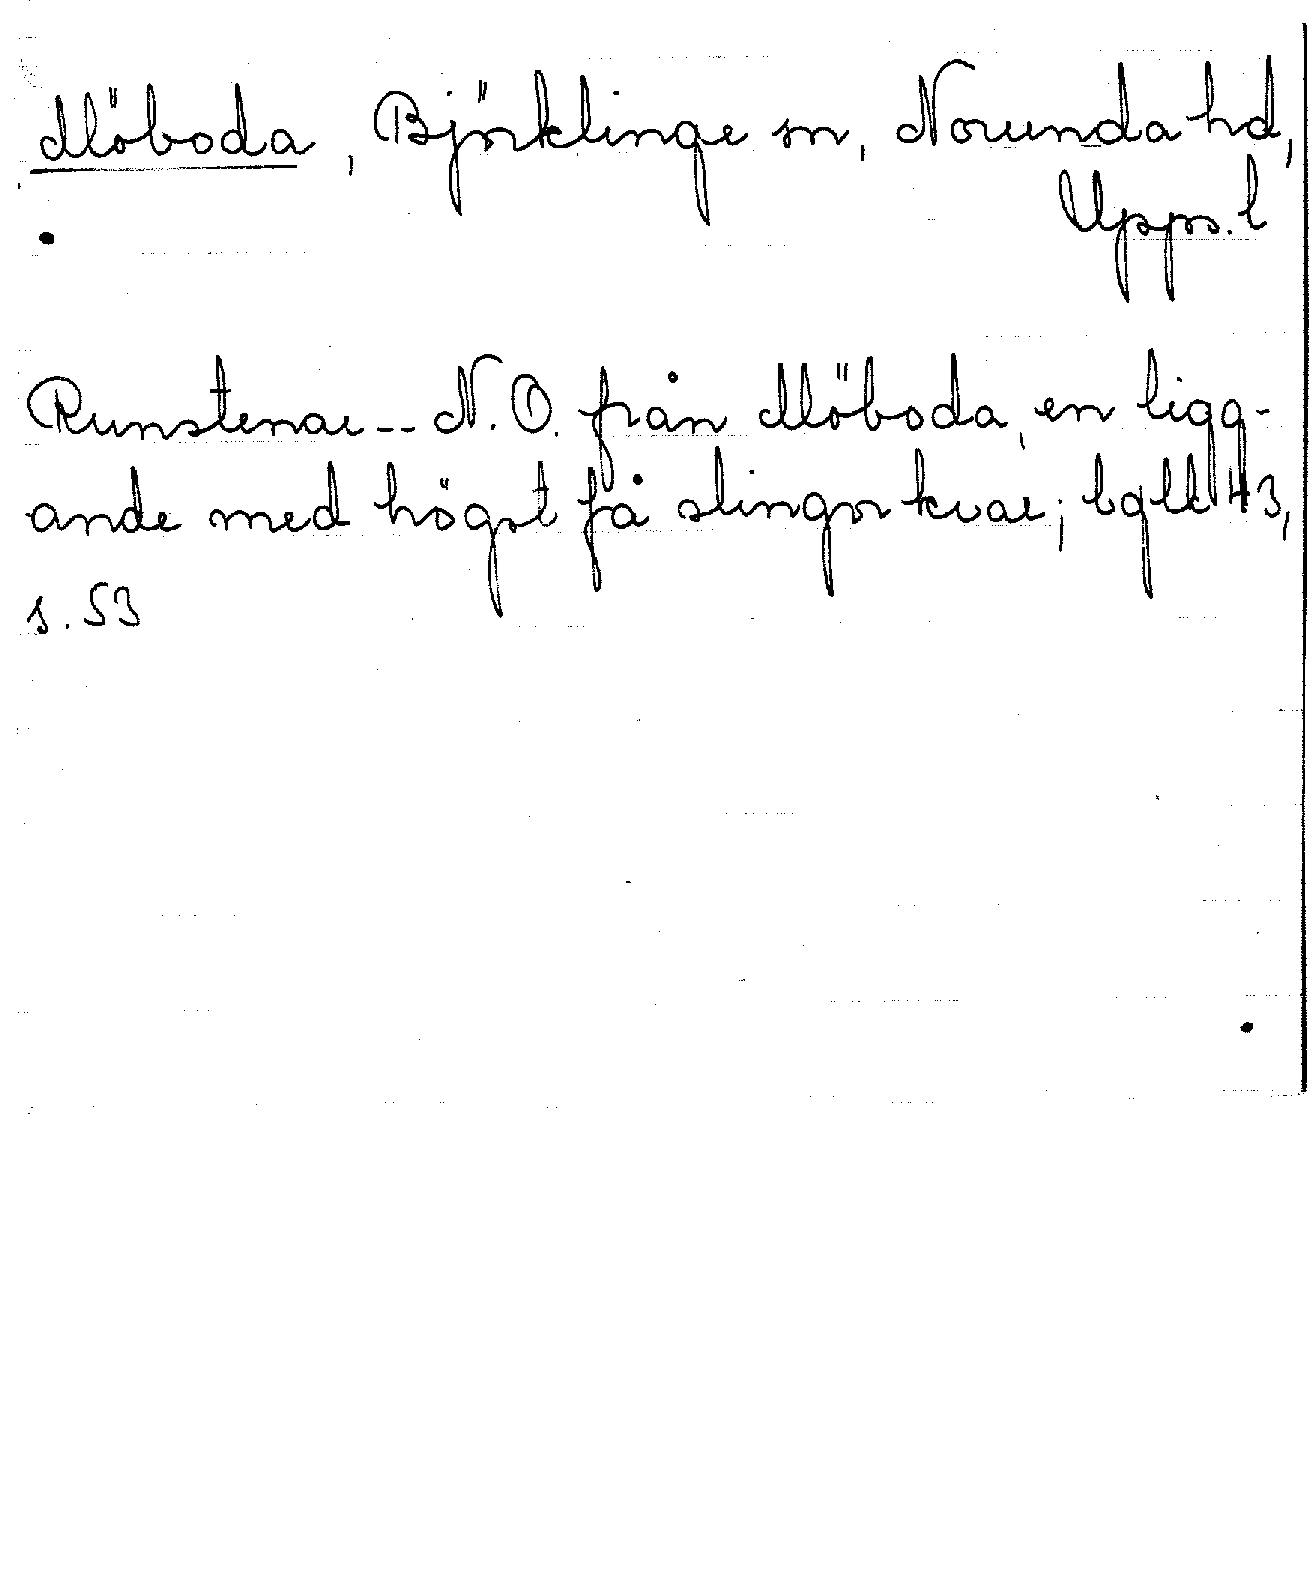 Möboda, Björklinge sn, Norunda hd,
Upps. l
Runstenar -- N.O. från Möboda, en ligg-
ande med högst få slingor kvar; bglk 43,
s. 53